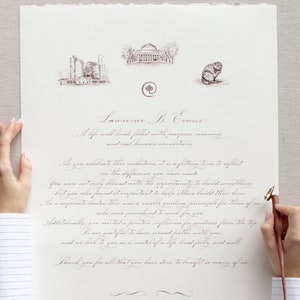 Lawrence B. Evans
A life well-lived filled with purpose, meaning
and vast human connections
As you celebrate this milestone, it is a fitting time to reflect
on the difference you have made.
You were not only blessed with the opportunity to build something
but you also found it important to help others build their own
As a corporate leader, this was a guiding principle for those of us
who were privileged to work for you.
Additionally, you created a
be so grateful to have crossed paths with you
and we look to you as a model of a life lived fully and well
Thank you for all that you have done to benefit so many of us